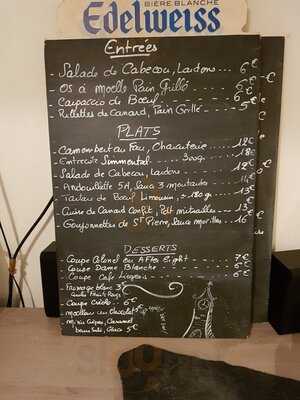 BIÈRE BLANCHE
Edelweiss
Entrées
- Salade de Cabecou, Lardons --- 6€
- Os à Moelle Pain Grillé --- €
- Carpaccio de Boeuf --- 6€
- Rillettes de Canard, Pain Grillé --- 5€
PLATS
Camembert au Four, Charcuterie ---- 12€
- Entrecôte Simmental ---- 300g --- 18€
- Salade de Cabecou, Lardons --- 12€
- Andouillette 5A, Sauce 3 moutardes
- Tartare de Boeuf Limousin, 180gr 13€
- Cuisse de Canard Confit, 13€
- Goujonnettes de St Pierre, Sauce morilles 16€
DESSERTS
- Coupe Colonel ou After Eight ---- 7€
- Coupe Dame Blanche ---- 6€
- Coupe Café Liégeois ---- 6€
- Fromage blanc 3€
Coulis Fruits Rouges
- Coupe 6€
- Moelleux au Chocolat
- Crêpes, Caramel
beurre Salé, Glace 5€